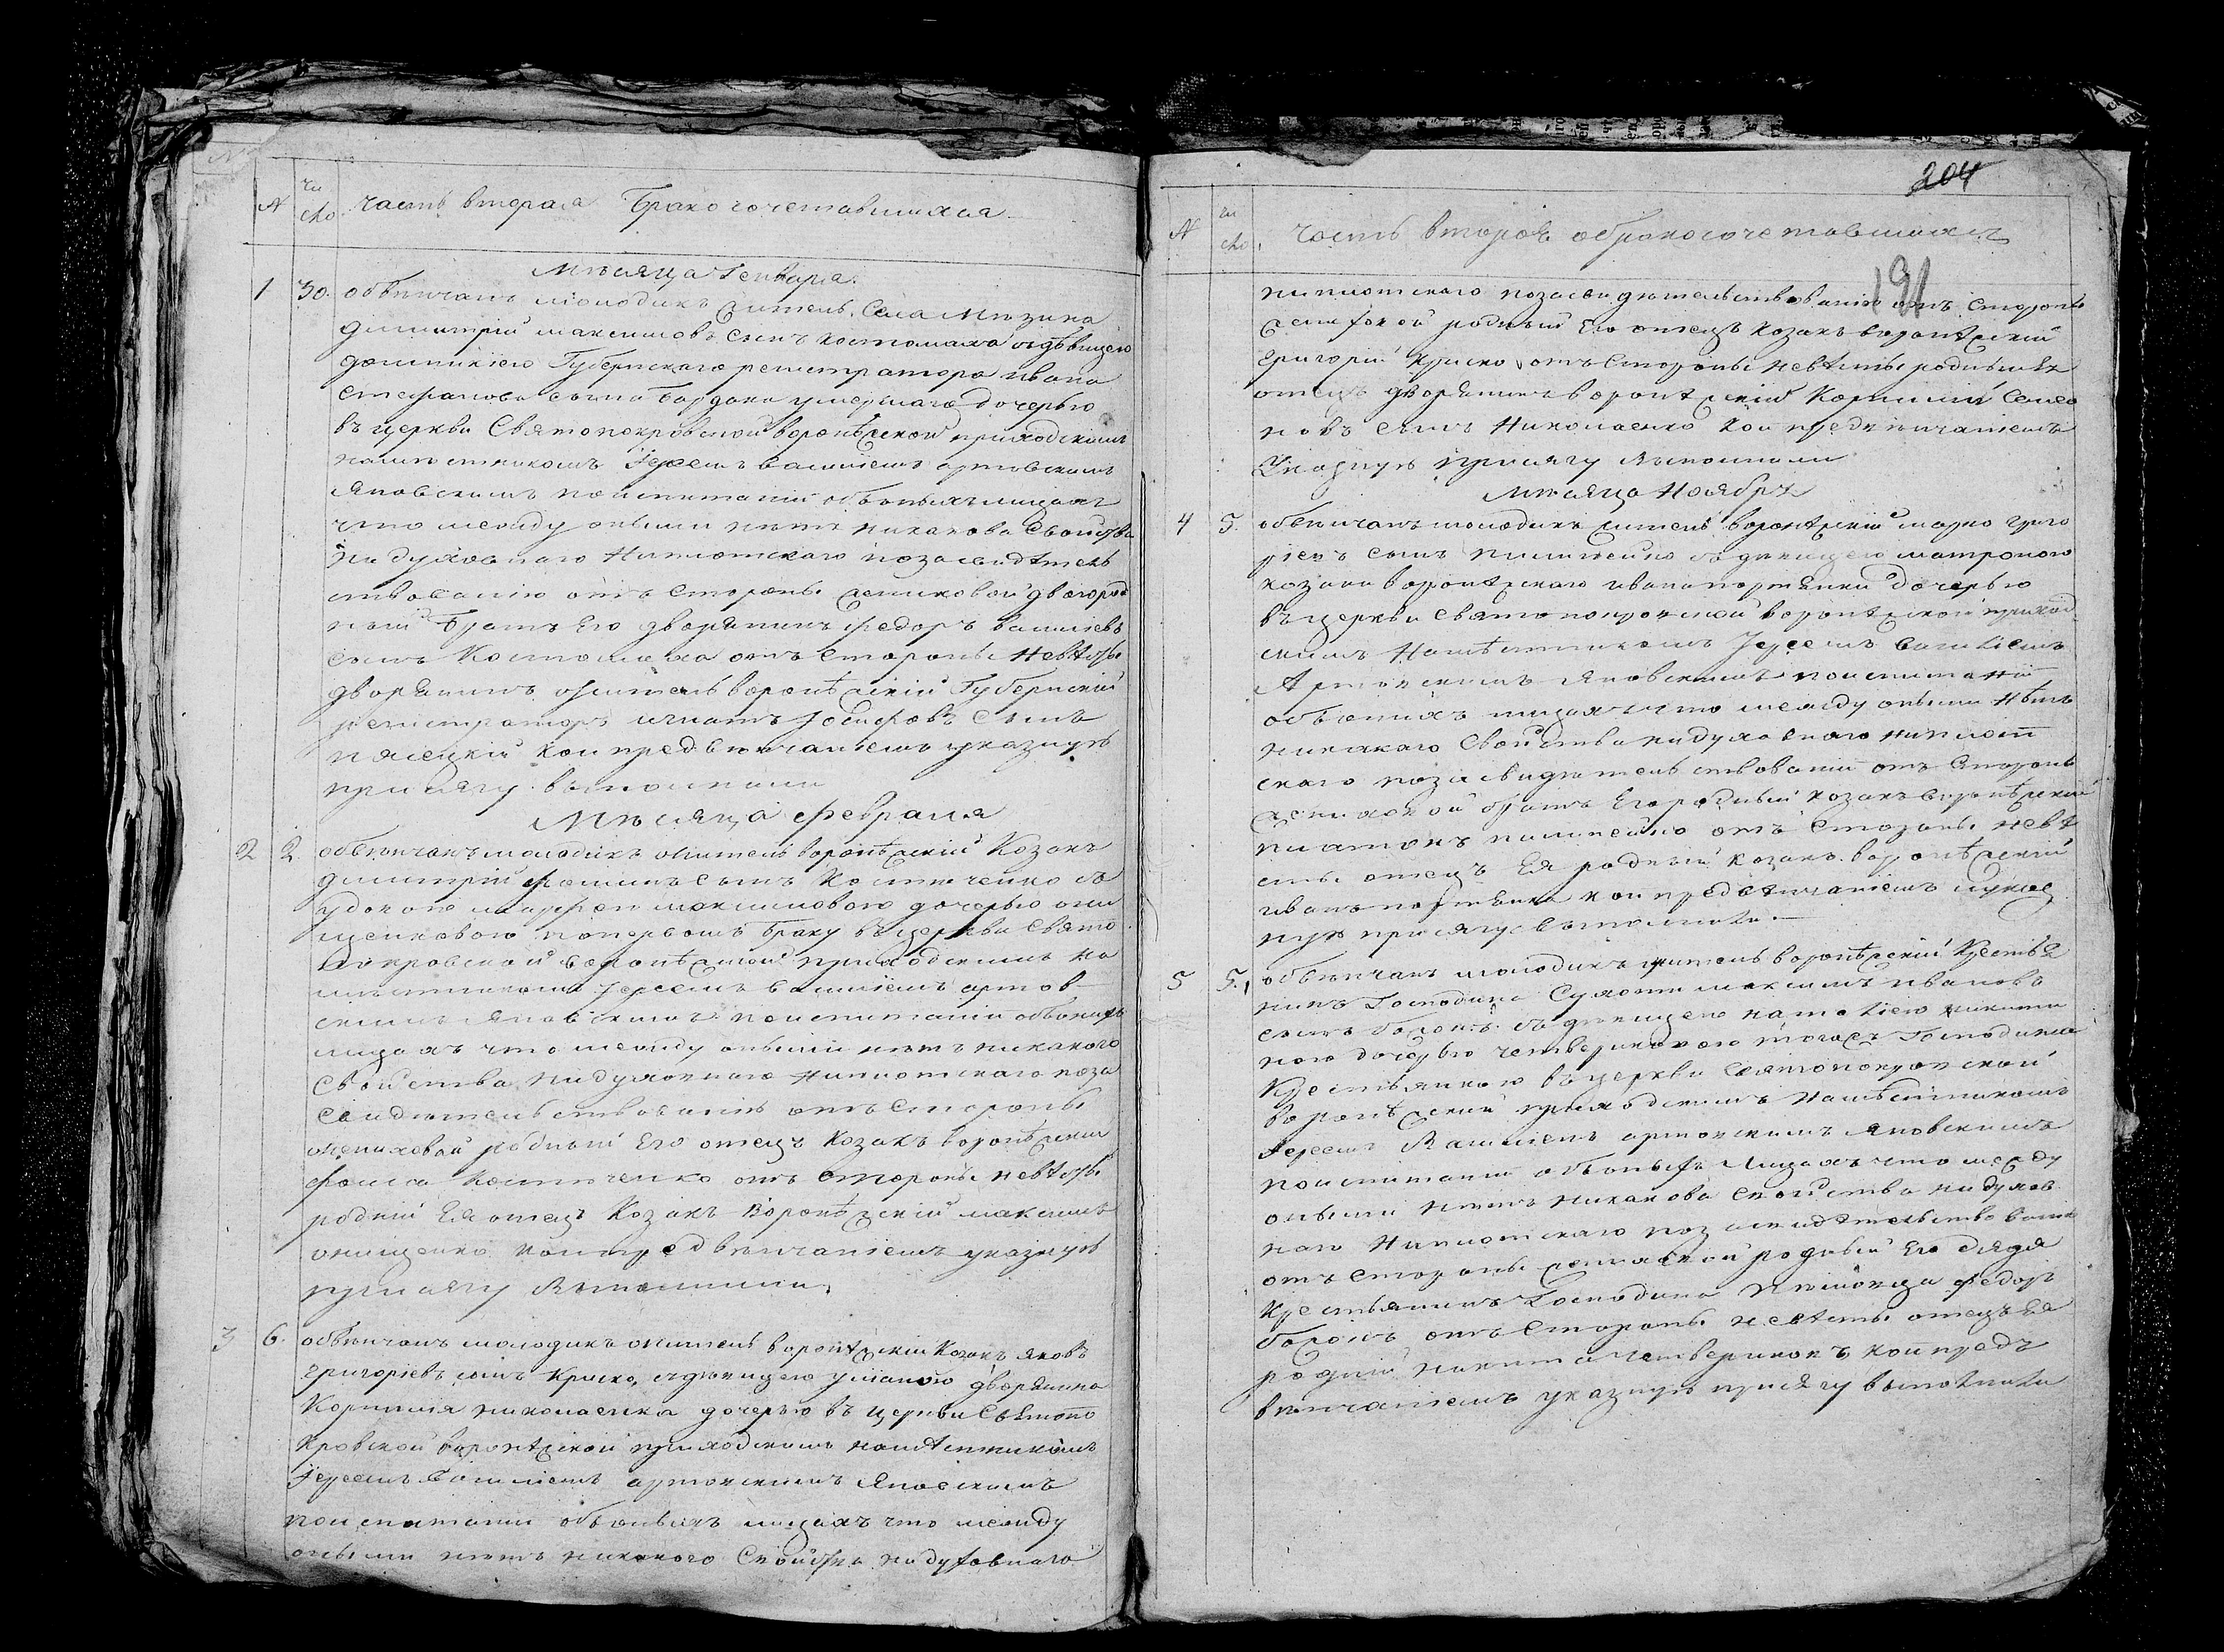 № чи сло часть вторая Бракосочетавшихся
Мѣсяца Генваря
1 30. обвѣнчанъ молодикъ житель села Мѣзина
Димитрій максимовъ сынъ костомаха съ дѣвицею
Губернскаго регистратора ивана
стефанова сына умершаго дочерью
въ церкви Святопокровской воронѣжской приходскимъ
намѣстникомъ Іереемъ василіемъ артовскимъ
Яновскимъ поиспитаніи обоныхъ лицахъ
что между оными нетъ никакова свойства
нидуховнаго Ниплотскаго позасвидѣтель
ствованію отъ стороны жениховой двоюрод
ній братъ Его дворянинъ федоръ василіевъ
сынъ Костомаха отъ стороны Невѣсты
дворянинъ житель воронѣжскій Губернскій
регистраторъ игнатъ Іосифовъ сынъ
кои предвѣнчаніемъ указную
присягу выполнили
Мѣсяца февраля
2 2 обвѣнчанъ молодикъ житель воронѣжскій Козакъ
Димитрій фоминъ сынъ Костюченко съ
удовою марфою максимовою дочерью они
щенковою поперьвомъ браку въ церкви Свято
покровской воронѣжской приходскимъ на
мѣстникомъ Іереемъ василіемъ артов
скимъ Яновскимъ поиспитаніи обоныхъ
лицахъ что между оными нетъ никакого
свойства Нидуховнаго Ниплотскаго поза
свидетельствованію отъ стороны
жениховой родный Его отецъ Козакъ воронѣжскій
фома Костюченко отъ стороны невѣсты
родній Ея отецъ Козакъ Воронѣжскій максимъ
онищенко кои предвѣнчаніемъ указную
присягу выполнили.
3 6. обвѣнчанъ молодикъ житель воронѣжскій Козакъ яковъ
григоріевъ сынъ Криско, съ дѣвицею уліаною дворянина
Корнилія николаенка дочерью въ церкви Святопо
кровской воронѣжской приходскимъ намѣстникомъ
Іереемъ василіемъ артовскимъ Яновскимъ
поиспитаніи обоныхъ лицахъ что между
оными нетъ никакого свойства нидуховнаго
204
№ чи сло часть вторая обракосочетавшихся
191
ниплотскаго позасвидѣтельствованію отъ стороны
жениховой родный Его отецъ козакъ воронѣжскій
григорій криско отъ стороны невѣсты родный Ея
отецъ дворянинъ воронѣжскій Корнилій Семео
новъ сынъ Николаенко кои предвѣнчаніемъ
Указную присягу выполнили
Мѣсяца Ноября
4 5. обвѣнчанъ молодикъ житель воронѣжскій марко григо
ріевъ сынъ пилипейко съ дѣвицею матроною
козака воронѣжскаго ивана портянки дочерью
въ церкви святопокровской воронѣжской приход
скимъ Намѣстникомъ Іереемъ василіемъ
Артовскимъ Яновскимъ поиспитаніи
объоныхъ лицахъ что между оными нѣтъ
никакаго свойства нидуховнаго ниплот
скаго позасвидѣтельствованіи отъ стороны
жениховой братъ Его родный козакъ воронѣжскій
платонъ пилипейко отъ стороны невѣ
сты отецъ Ея родный козакъ воронѣжскій
иванъ портянка кои предвѣнчаніемъ указ
ную присягу выполнили.
5 5. обвѣнчанъ молодикъ житель воронѣжскій Крестья
нинъ Господина максимъ ивановъ
сынъ съ дѣвицею наталіею никити
ною дочерью четвериковою тогожъ Господина
Крестьянкою въ церкви святопокровской
воронѣжской приходскимъ Намѣстникомъ
Іереемъ Василіемъ артовскимъ Яновскимъ
поиспитаніи объоныхъ лицахъ что между
оными нетъ никакова свойства нидухов
наго Ниплотскаго позасвидѣтельствованію
отъ стороны жениховой родный Его дядя
Крестьянинъ Господина федоръ
отъ стороны невѣсты отецъ Ея
родній никита четвериковъ кои предъ
вѣнчаніемъ указную присягу выполнили